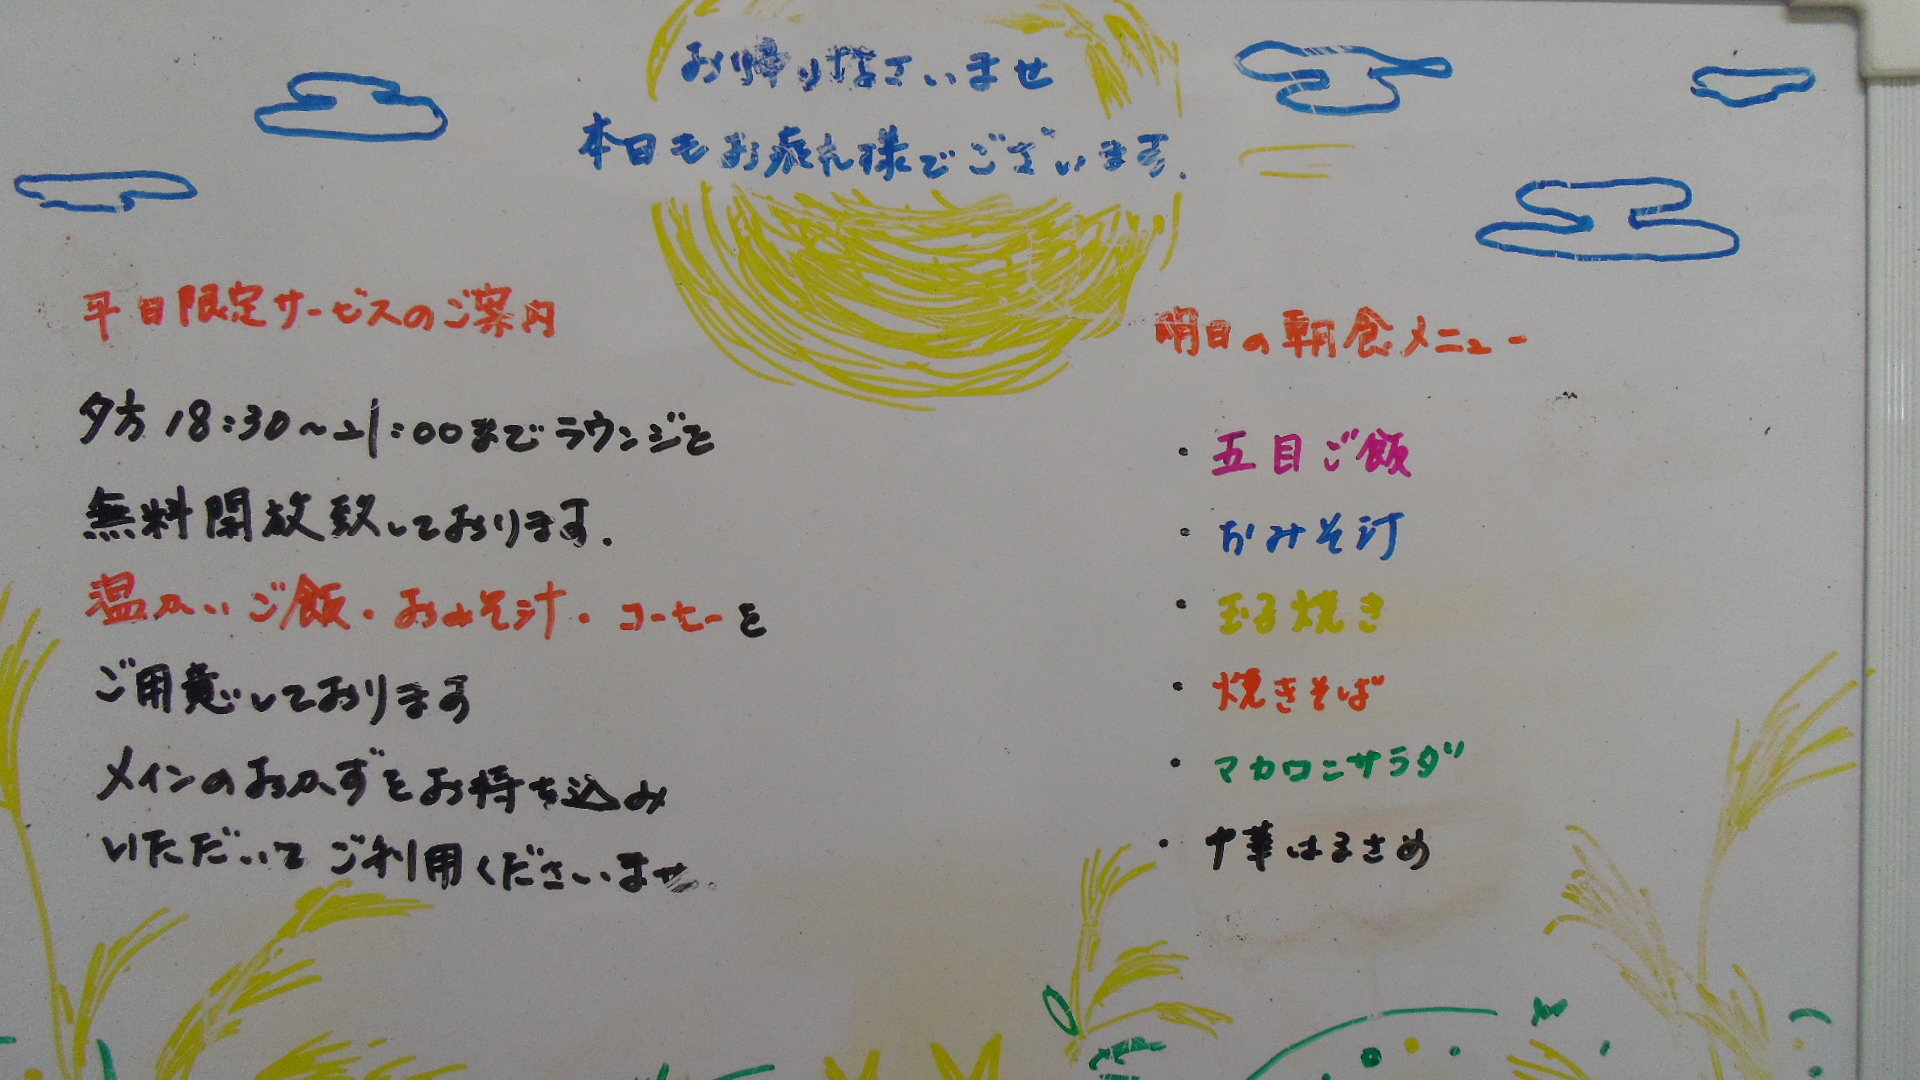 お帰りなさいませ
本日もお疲れ様でございます.
平日限定サービスのご案内
夕方18:30~21:00までラウンジを
無料開放致しております.
温かいご飯・おみそ汁・コーヒーを
ご用意しております
メインのおかずをお持ち込み
いただいてご利用くださいませ.
明日の朝食メニュー
・五目ご飯
・おみそ汁
・玉子焼き
・焼きそば
・マカロニサラダ
・中華はるさめ